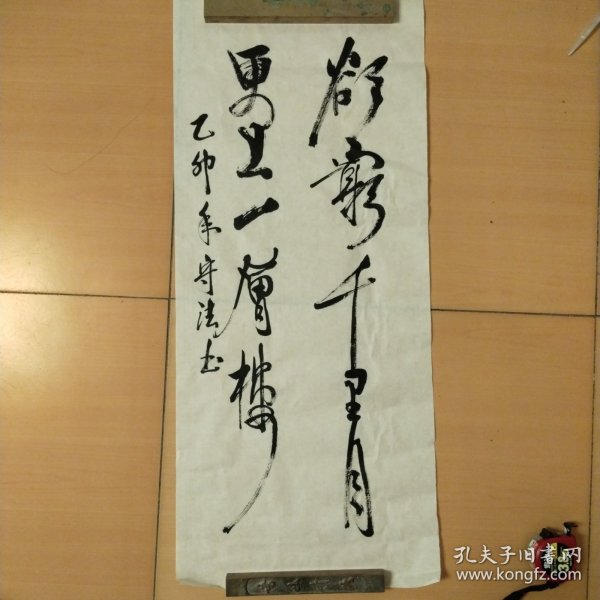 欲窮千里目
更上一層樓
乙卯年守法书
孔夫子旧書网
www.kongfz.com